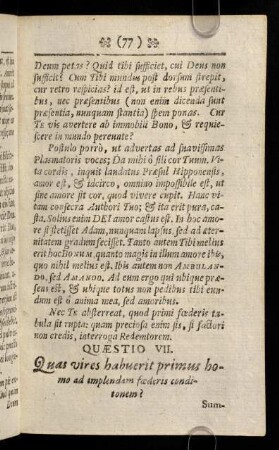 (77)
Deum petas? Quid tibi sufficiet, cui Deus non
sufficit? Cum Tibi mundus post dorsum strepit,
cur retro respicias? id est, ut in rebus præsenti-
bus, nec præsentibus (non enim dicenda sunt
præsentia, nunquam stantia) spem ponas. Cur
Te vis avertere ab immobili Bono, & requie-
scere in mundo pereunte?
Postulo porrò, ut advertas ad suavissimas
Plasmatoris voces; Da mihi ô fili cor Tuum. Vi-
ta cordis, inquit laudatus Præsul Hipponensis,
amor est, & idcirco, omnino impossibile est, ut
sine amore sit cor, quod vivere cupit. Hanc vi-
tam consecra Authori Tuo; & ita erit pura, ca-
sta, Solius enim DEI amor castus est. In hoc amo-
re si stetisset Adam, nunquam lapsus, sed ad æter-
nitatem gradum fecisset. Tanto autem Tibi melius
erit hoc bonum, quanto magis in illum amore ibis,
quo nihil melius est. Ibis autem non AMBULAN-
DO, sed AMANDO, Ad eum ergo qui ubique præ-
sens est, & ubique totus non pedibus tibi eun-
dum est ô anima mea, sed amoribus.
Nec Te absterreat, quod primi fœderis ta-
bula sit rupta: quam preciosa enim sis, si factori
non credis, interroga Redemtorem.
QUÆSTIO VII.
Quas vires habuerit primus ho-
mo ad implendam fœderis condi-
tionem?
Sum-